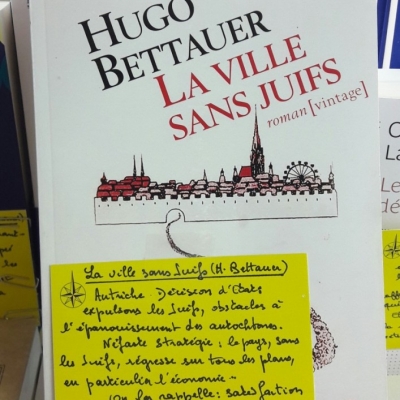 HUGO
BETTAUER
LA VILLE
SANS JUIFS
roman [vintage]
La ville sans Juifs (H. Bettauer)
Autriche. Décision d'Etat :
expulsons les Juifs, obstacles à
l'épanouissement des autochtones.
Néfaste stratégie : le pays, sans
les Juifs, régresse sur tous les plans,
en particulier l'économie -
On les rappelle : satisfaction
O
La
Le
dé